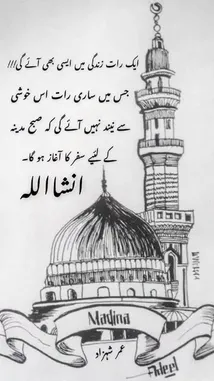 ایک رات زندگی میں ایسی بھی آئے گی!!!
جس میں ساری رات اس خوشی
سے نیند نہیں آئے گی کہ صبح مدینہ
کے لئیے سفر کا آغاز ہو گا۔
انشااللہ
Madina
Adeel
عمر شہزاد